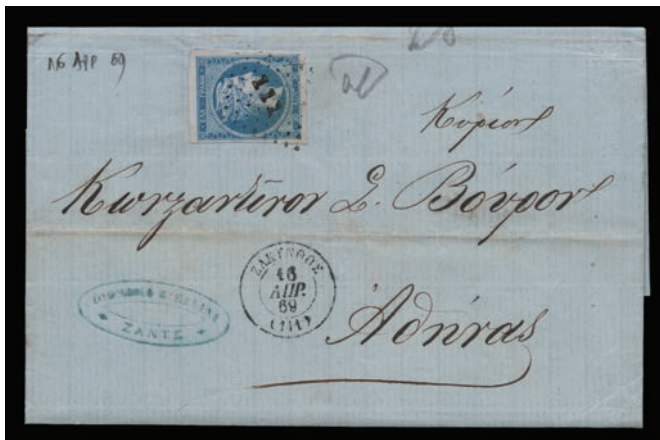 16 ΑΠΡ 69
111
Κύριον
Κωνσταντίνον Σ. Βούρον
ΖΑΚΥΝΘΟΣ
16
ΑΠΡ.
69
(111)
ZANTE
Ἀθήνας